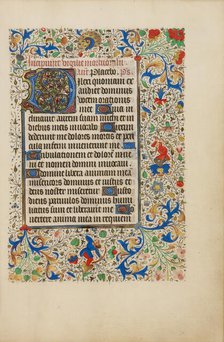 Incipiunt vigilie mortuorum
ant Placebo. Ps
Dilexi quoniam ex
audiet dominus
vocem orationis
mee Quia in
clinavit aurem suam michi et in
diebus meis invocabo
dolores mortis et
pericula inferni invenerunt me
Tribulationem et dolorem inve
ni et nomen domini invocavi
O domine libera animam meam
misericors dominus et iustus et
deus noster miseretur
diens parvulos dominus humi
liatus sum et liberavit me
vertere anima mea in requiem